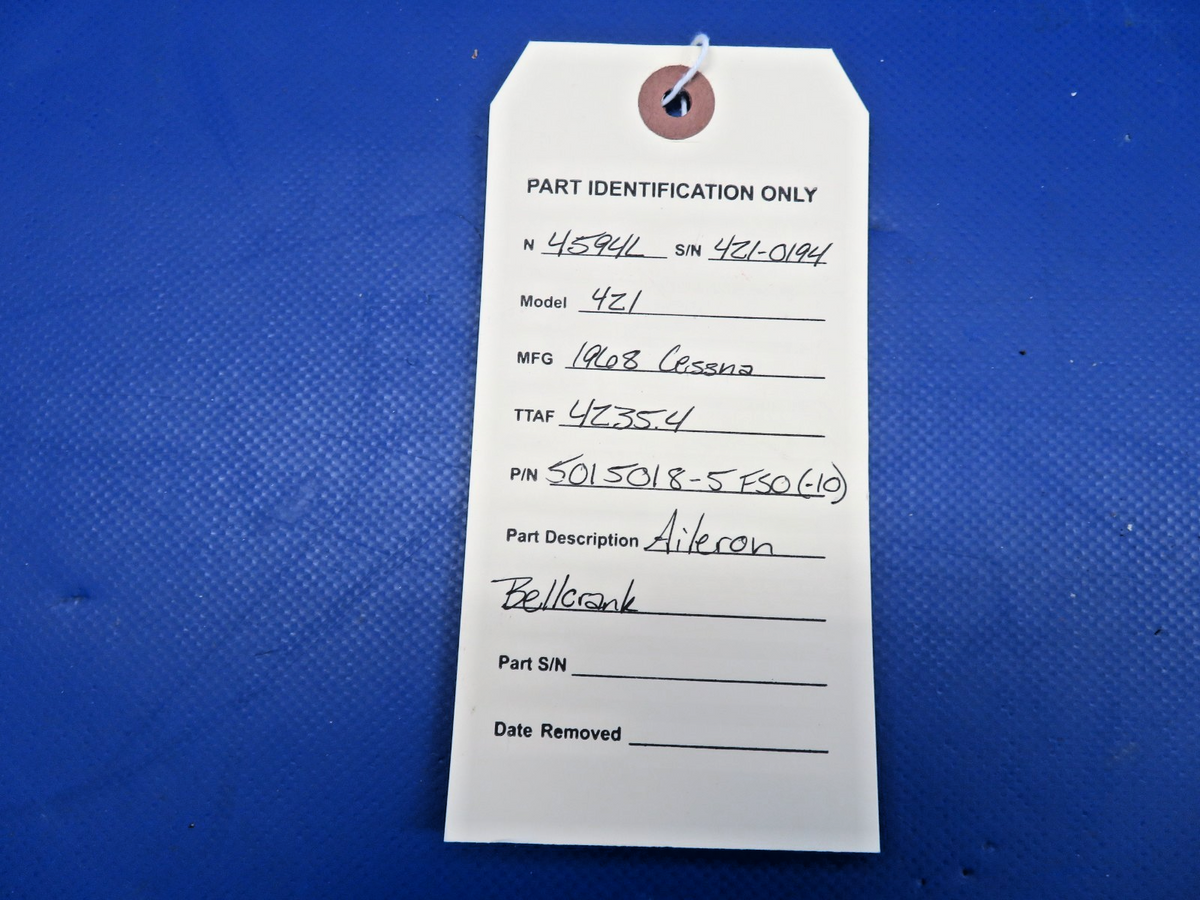 PART IDENTIFICATION ONLY
N 4594L S/N 421-0194
Model 421
MFG 1968 Cessna
TTAF 4235.4
P/N 5015018-5 FSO (-10)
Part Description Aileron
Bellcrank
Part S/N
Date Removed